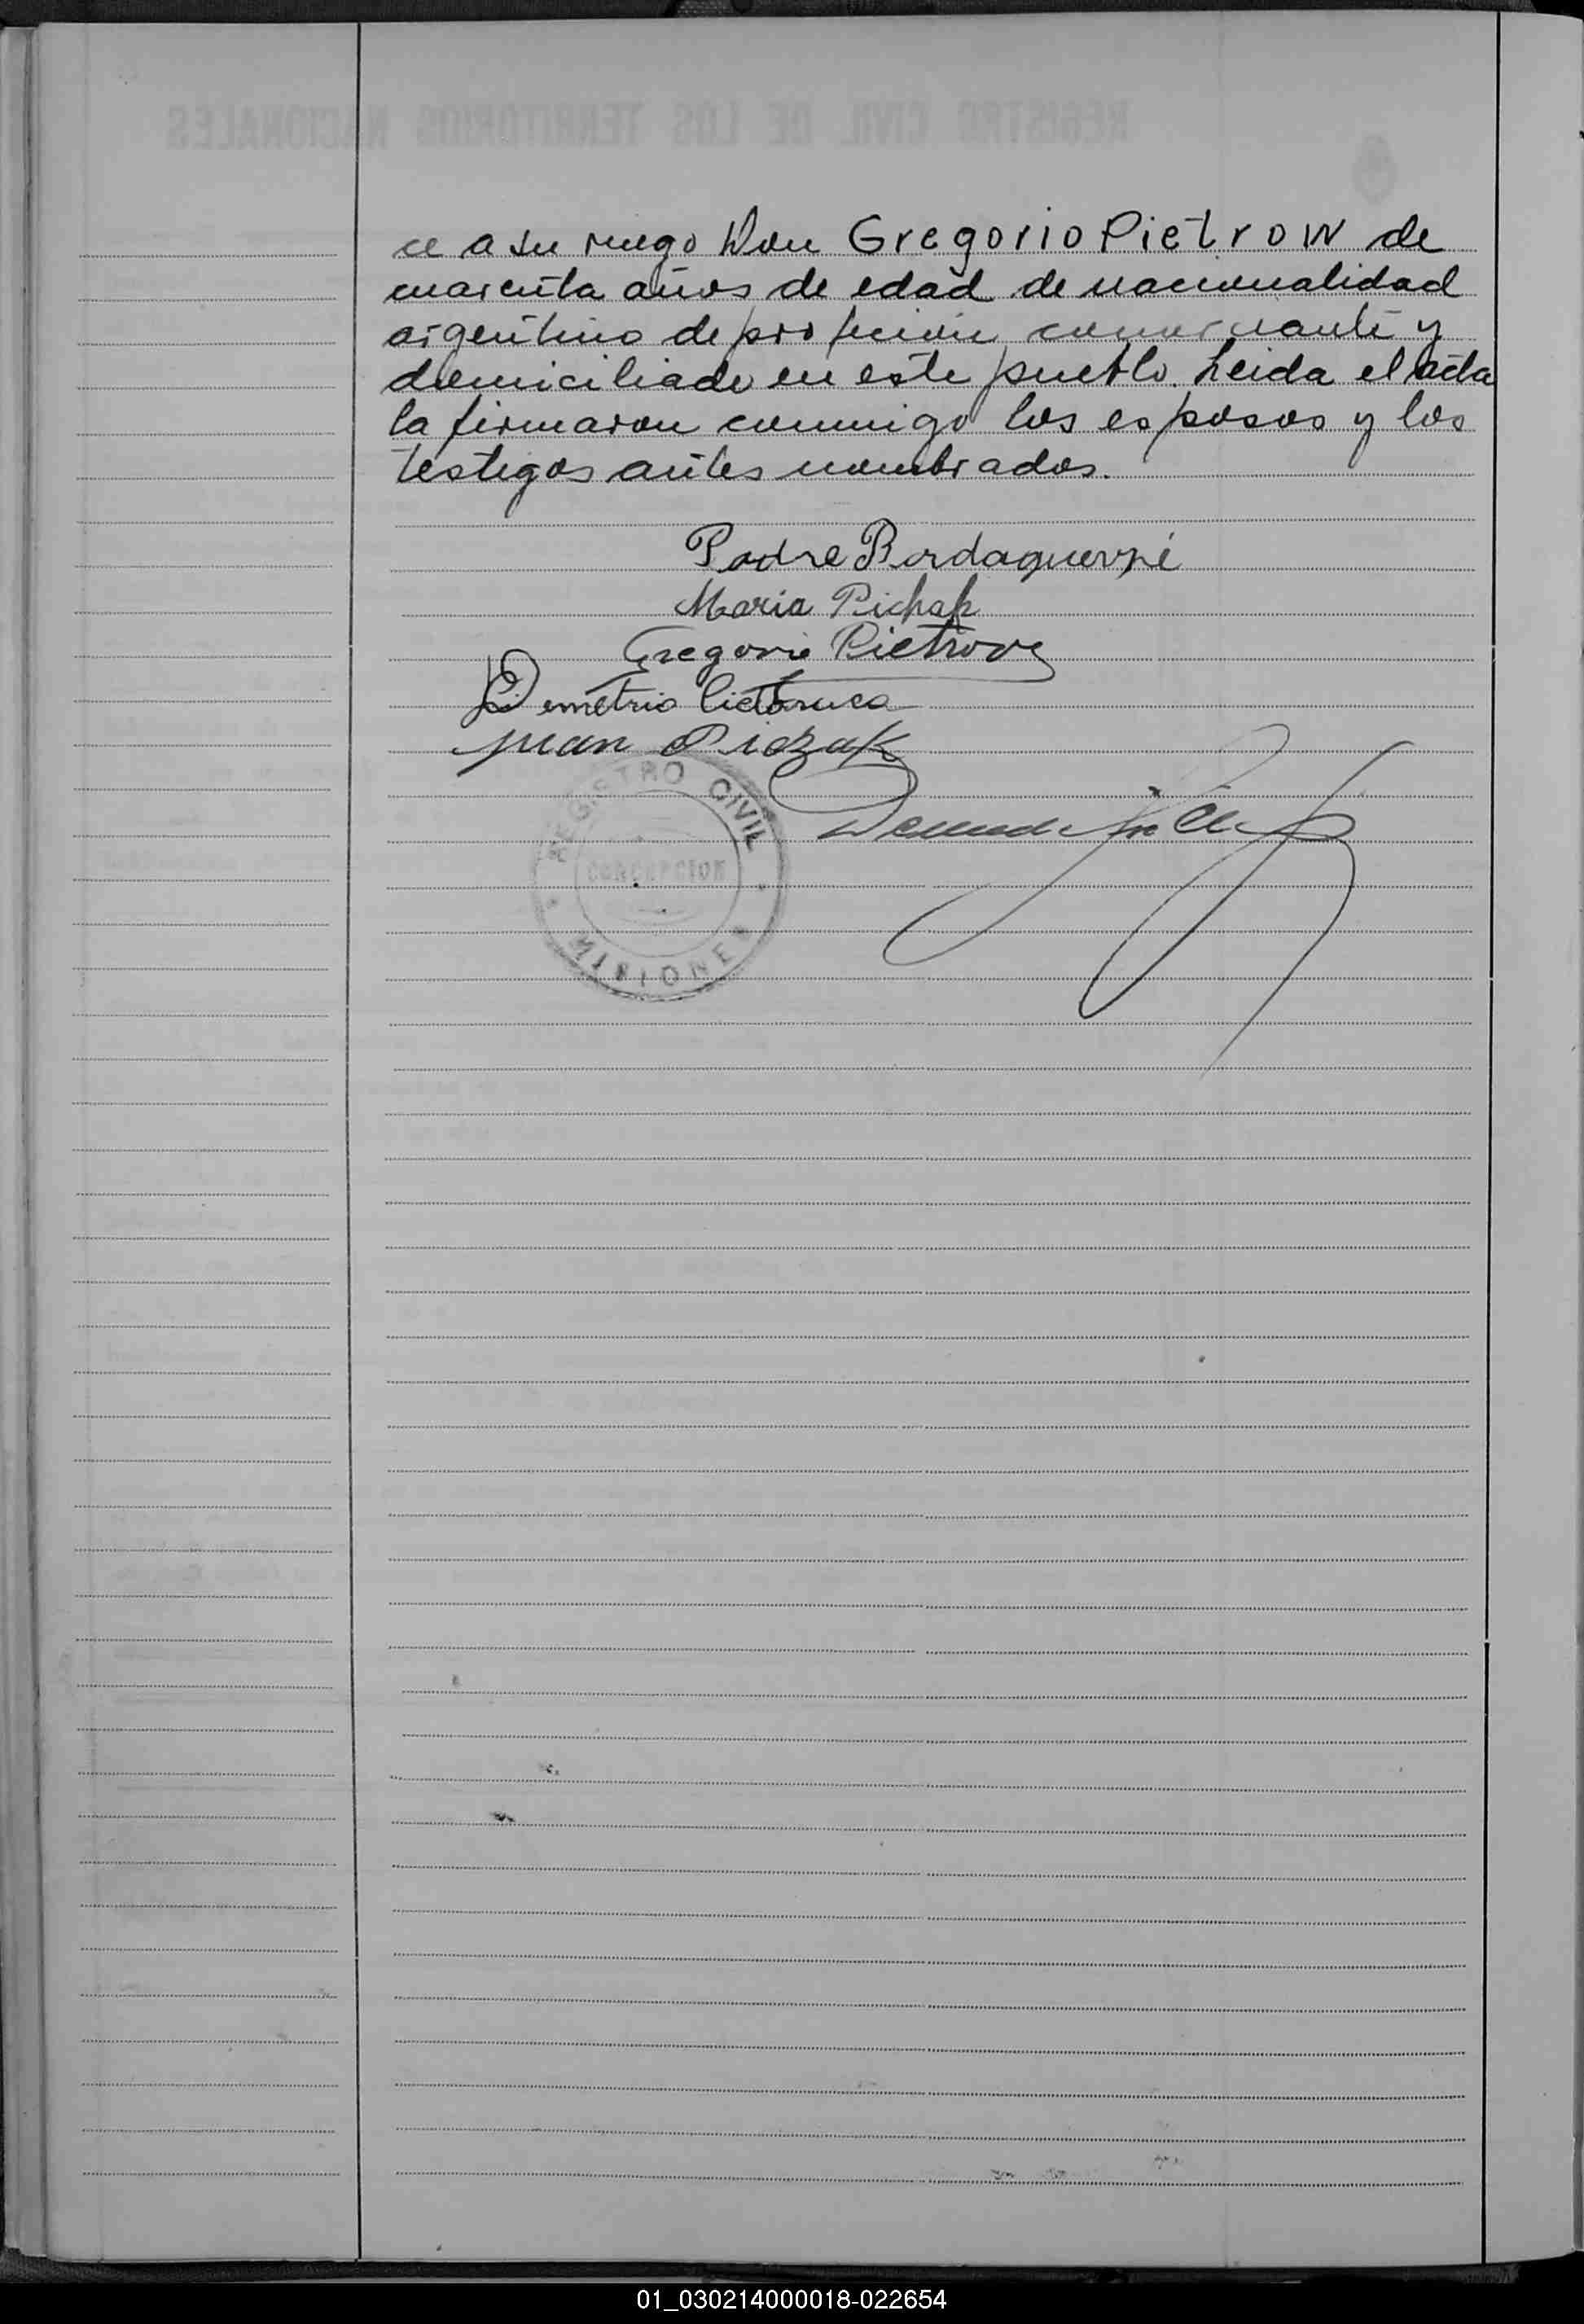 REGISTRO CIVIL DE LOS TERRITORIOS NACIONALES
ce a su ruego Don Gregorio Pietrow de
cuarenta años de edad de nacionalidad
argentino de profesion comerciante y
domiciliado en este pueblo. Leida el acta
la firmaron conmigo los esposos y los
testigos antes nombrados.
Padre
Maria Pichak
Gregorio Pietrow
Demetrio
Juan Piczak
REGISTRO CIVIL
CONCEPCION
MISIONES
01_030214000018-022654